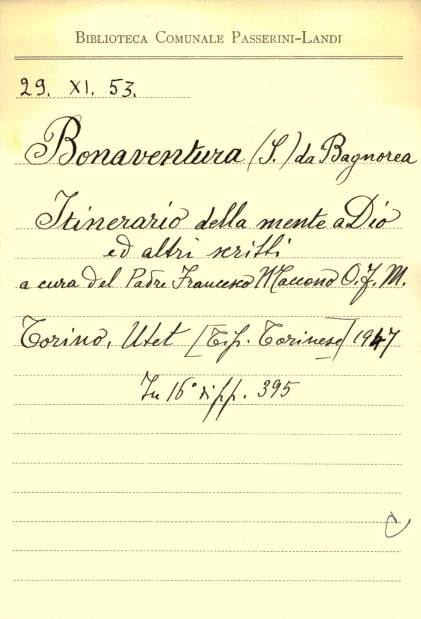 BIBLIOTECA COMUNALE PASSERINI-LANDI
29. XI. 53.
Bonaventura (S.) da Bagnorea
Itinerario della mente a Dio
ed altri scritti
a cura del Padre Francesco Maccono O.F.M.
Torino, Utet [Tip. Torinese] 1947
In 16° di pp. 395
C